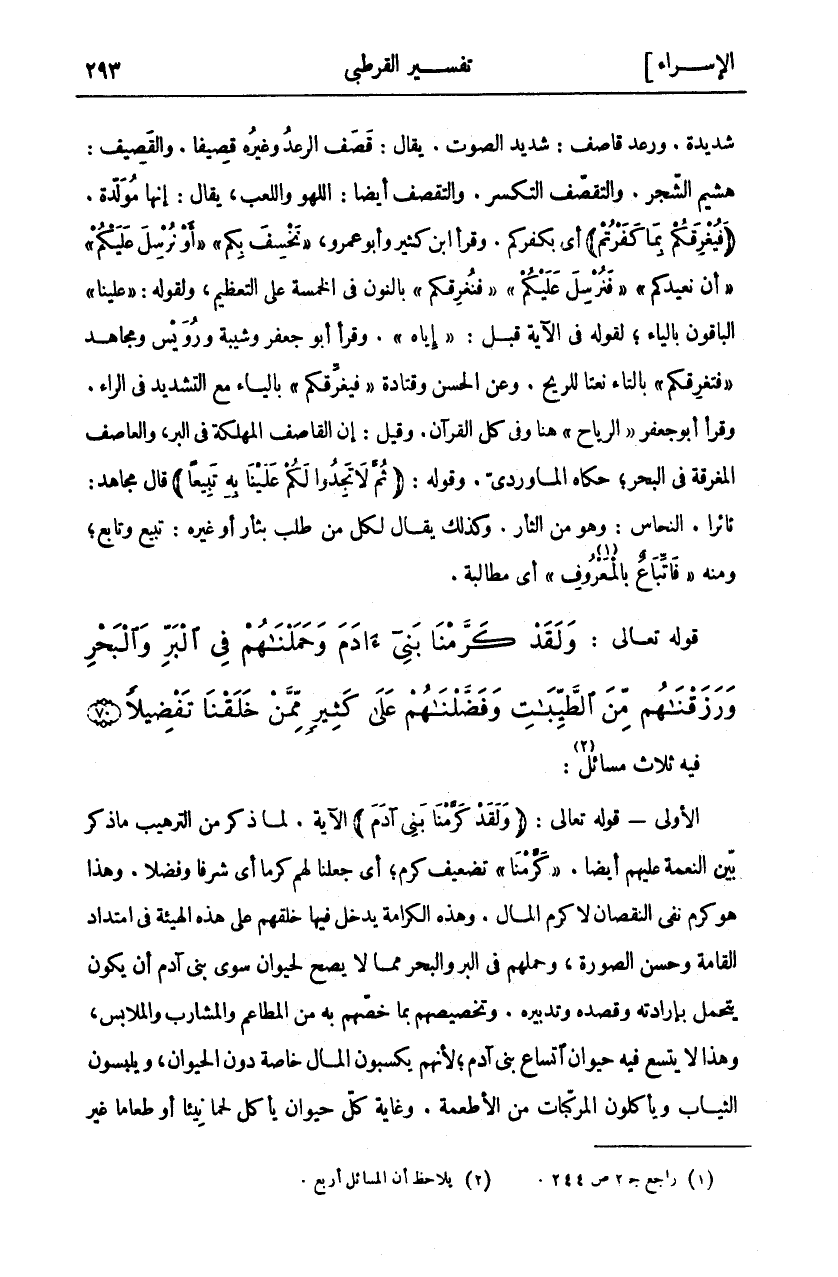 الإسراء] تفسير القرطبى ٢٩٣
شديدة . ورعد قاصف : شديد الصوت . يقال : قَصَف الرعدُ وغيرُه قصيفا . والقَصِيف :
هشيم الشّجر . والتقصّف التكسر . والتقصف أيضا : اللهو واللعب، يقال : إنها مُوَلَّدة .
﴿فَيُغْرِقَكُمْ بِمَا كَفَرْتُمْ﴾ أى بكفركم . وقرأ ابن كثير وأبو عمرو، «نَخْسِفَ بِكم» «أَوْ نُرْسِلَ عَلَيْكُمْ»
«أن نعيدكم» «فَنُرْسِلَ عَلَيْكُمْ» «فنُغرقكم» بالنون فى الخمسة على التعظيم، ولقوله : «علينا»
الباقون بالياء ؛ لقوله فى الآية قبل : « إياه » . وقرأ أبو جعفر وشيبة ورُوَيْس ومجاهد
«فتغرقكم» بالتاء نعتا للريح . وعن الحسن وقتادة « فيغرِّقكم » بالياء مع التشديد فى الراء .
وقرأ أبو جعفر « الرياح » هنا وفى كل القرآن. وقيل : إن القاصف المهلكة فى البر، والعاصف
المغرقة فى البحر؛ حكاه الماوردىّ . وقوله : ﴿ ثُمَّ لَا تَجِدُوا لَكُمْ عَلَيْنَا بِهِ تَبِيعًا ﴾ قال مجاهد:
ثائرا . النحاس : وهو من الثأر . وكذلك يقال لكل من طلب بثأر أو غيره : تبيع وتابع؛
ومنه « فَاتِّبَاعٌ بِالْمَعْرُوفِ(١) » أى مطالبة .
قوله تعالى : وَلَقَدْ كَرَّمْنَا بَنِىٓ ءَادَمَ وَحَمَلْنَـٰهُمْ فِى ٱلْبَرِّ وَٱلْبَحْرِ
وَرَزَقْنَـٰهُم مِّنَ ٱلطَّيِّبَـٰتِ وَفَضَّلْنَـٰهُمْ عَلَىٰ كَثِيرٍ مِّمَّنْ خَلَقْنَا تَفْضِيلًا ٧٠
فيه ثلاث مسائل(٢) :
الأولى – قوله تعالى : ﴿ وَلَقَدْ كَرَّمْنَا بَنِى آدَمَ ﴾ الآية . لما ذكر من الترهيب ماذكر
بيّن النعمة عليهم أيضا . «كَرَّمْنَا» تضعيف كرم؛ أى جعلنا لهم كرما أى شرفا وفضلا . وهذا
هو كرم نفى النقصان لا كرم المال . وهذه الكرامة يدخل فيها خلقهم على هذه الهيئة فى امتداد
القامة وحسن الصورة ، وحملهم فى البر والبحر مما لا يصح لحيوان سوى بنى آدم أن يكون
يتحمل بإرادته وقصده وتدبيره . وتخصيصهم بما خصّهم به من المطاعم والمشارب والملابس،
وهذا لا يتسع فيه حيوان آتساع بنى آدم ؛ لأنهم يكسبون المال خاصة دون الحيوان، ويلبسون
الثياب ويأكلون المركّبات من الأطعمة . وغاية كلّ حيوان يأكل لحما نِيئا أو طعاما غير
(١) راجع ج ٢ ص ٢٤٤ . (٢) يلاحظ أن المسائل أربع .